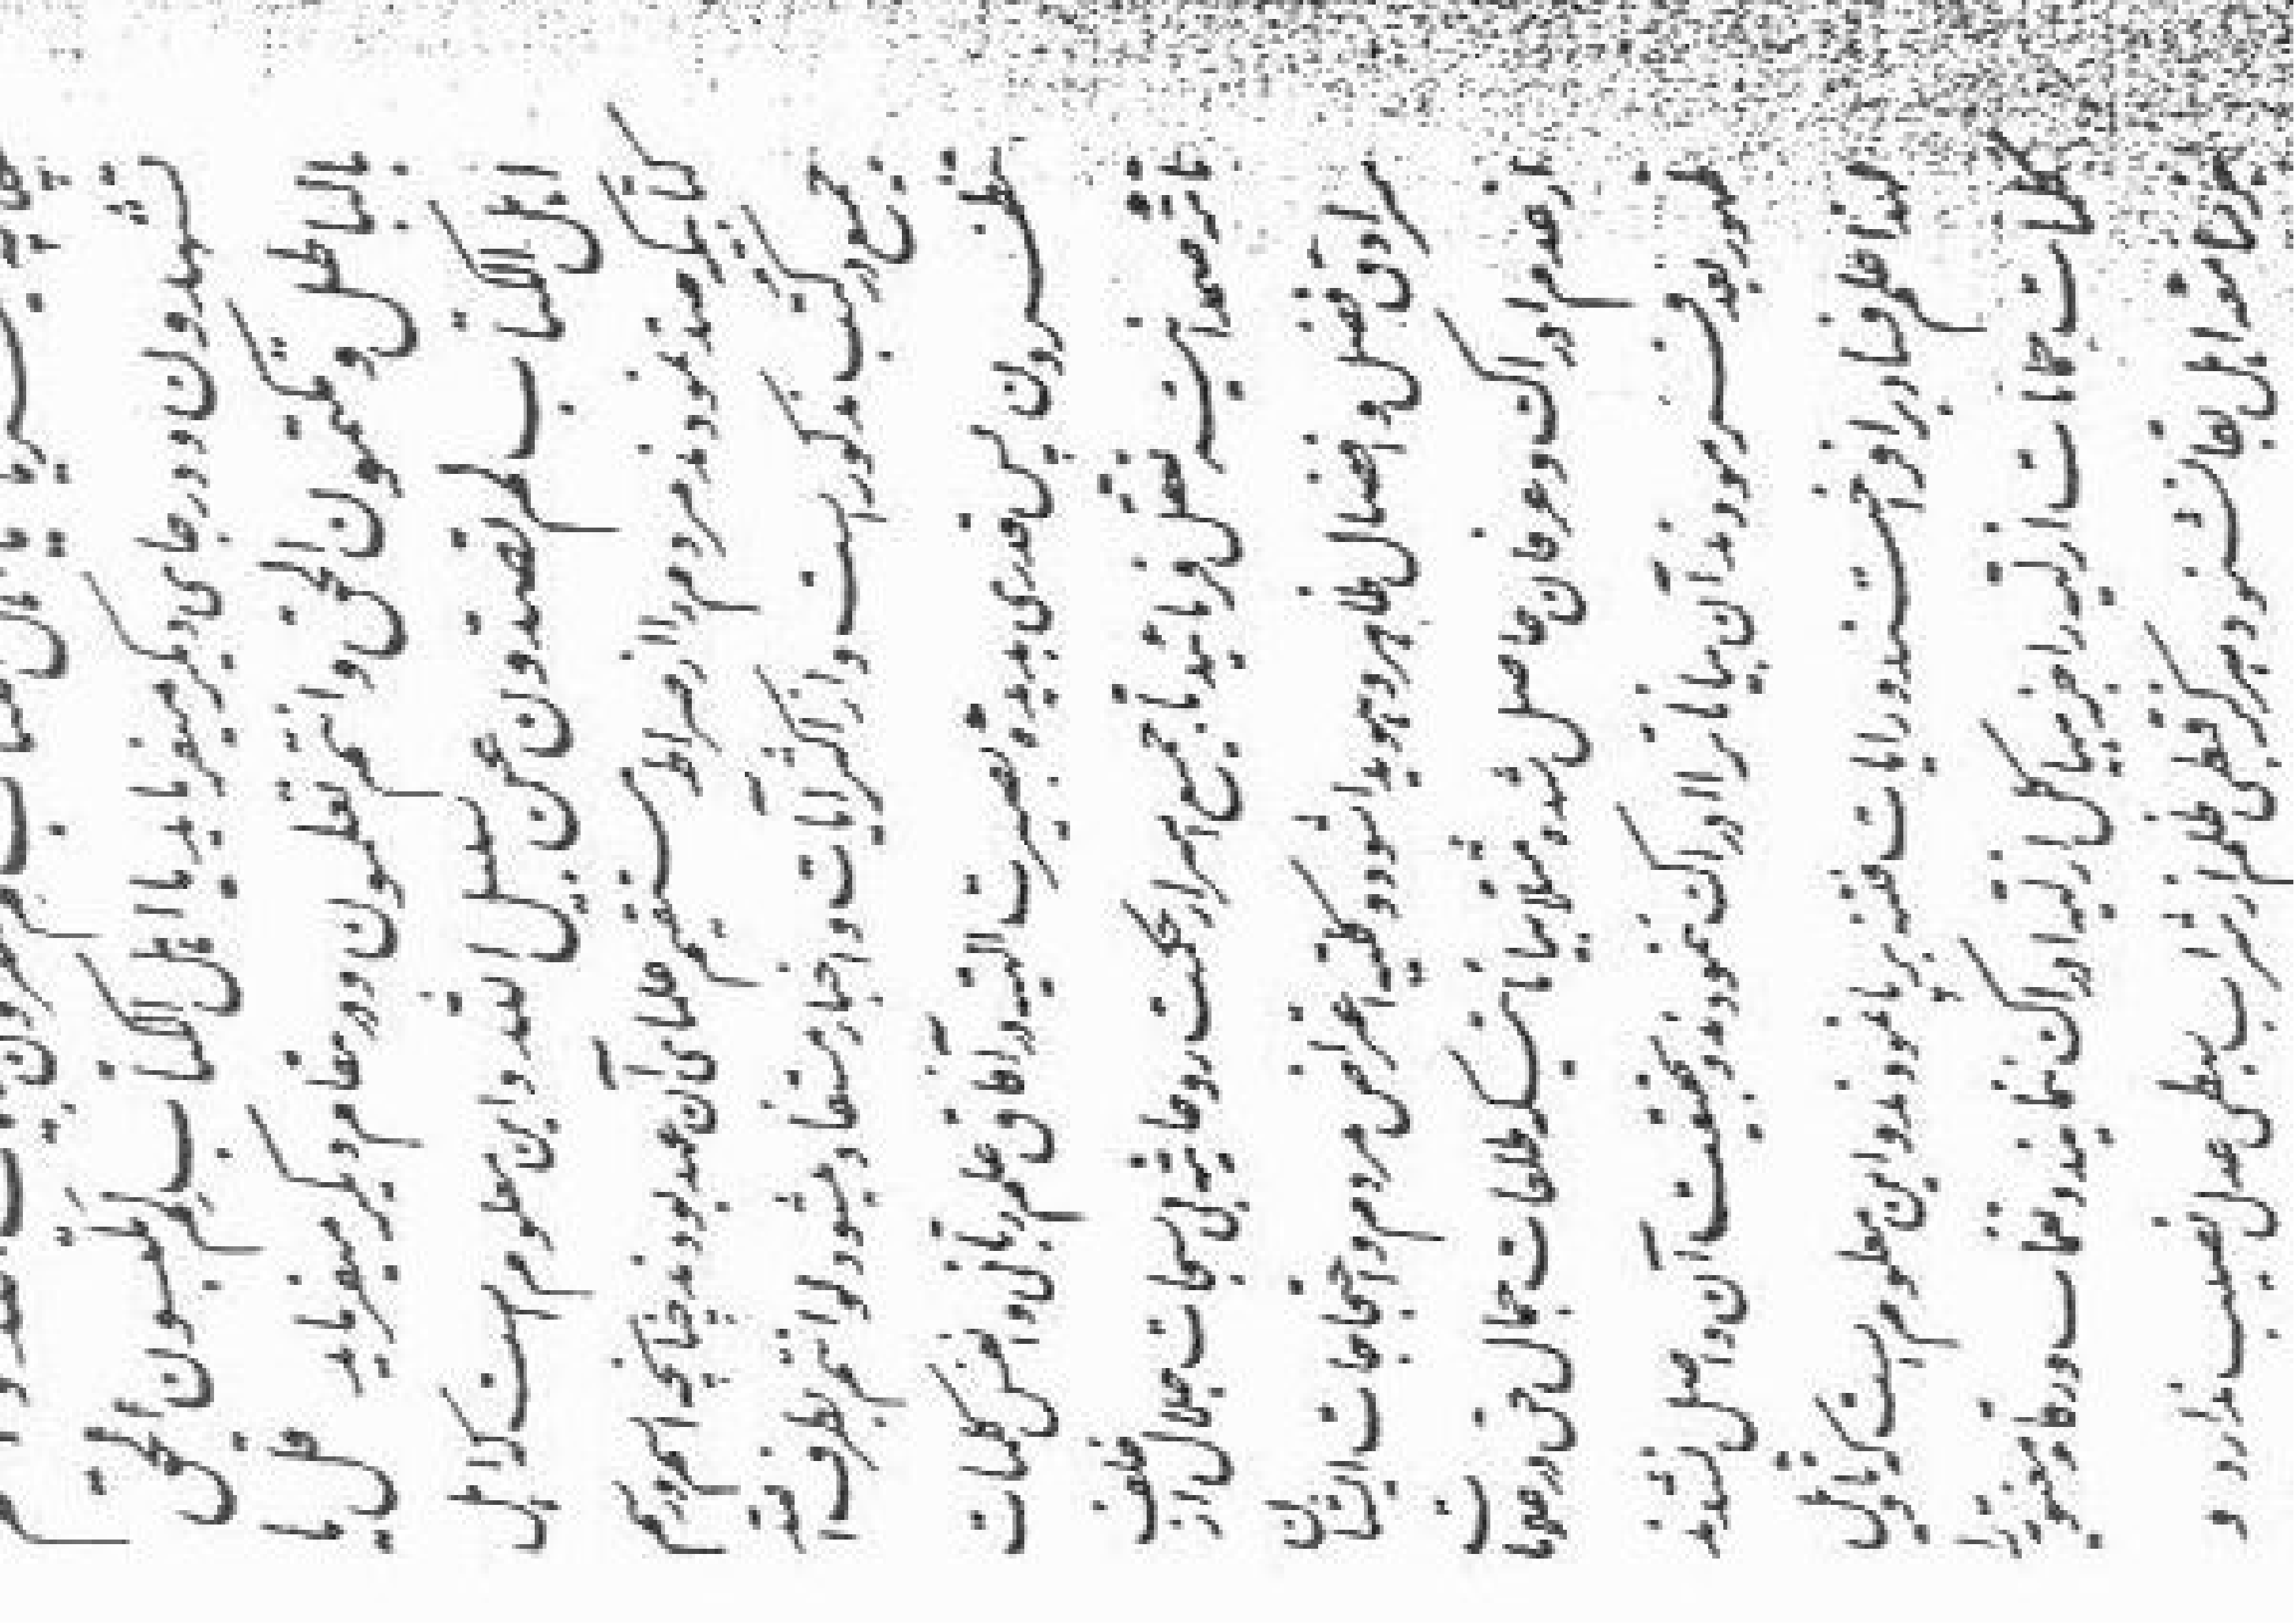 تشهدون و در جای دیگر میفرماید یا اهل الکتاب لم تلبسون الحق
بالباطل و تکتمون الحق و انتم تعلمون و در مقام دیگر میفرماید قل یا
اهل الکتاب لم تصدون عن سبیل الله و این معلوم است که اهل
کتابیکه صد نمودند مردم را از صراط مستقیم علمای آن عهد بودند چنانچه اسم و رسم
جمیع در کتب مذکور است و از اکثر آیات و اخبار مستفاد میشود لو انتم بطرف الله
تنظرون پس قدری بدیده بصیرت الهیه در آفاق علم ربانی و انفس کلمات
تامه صمدانیه تعقل فرمائید تا جمیع اسرار حکمت روحانیه بی سبحات جلال از خلف
سرادق فضل و افضال ظاهر و هویدا شود و کلیه اعراض مردم و احتجاجات ایشان
از عدم ادراک و عرفان حاصل شده مثلا بیاناتیکه طلعات جمال حق در علامات
ظهور بعد فرمودند آن بیانات را ادراک ننمودند و بحقیقت آن واصل نشدند
لهذا علم فساد برافراختند و رایات فتنه برپا نمودند و این معلوم است که تاویل
کلمات حمامات ازلیه را جز هیاکل ازلیه ادراک ننمایند و نغمات ورقاء معنویه را
جز سامعه اهل بقا نشنود هرگز قبطی ظلم از شراب سبطی عدل نصیب ندارد و